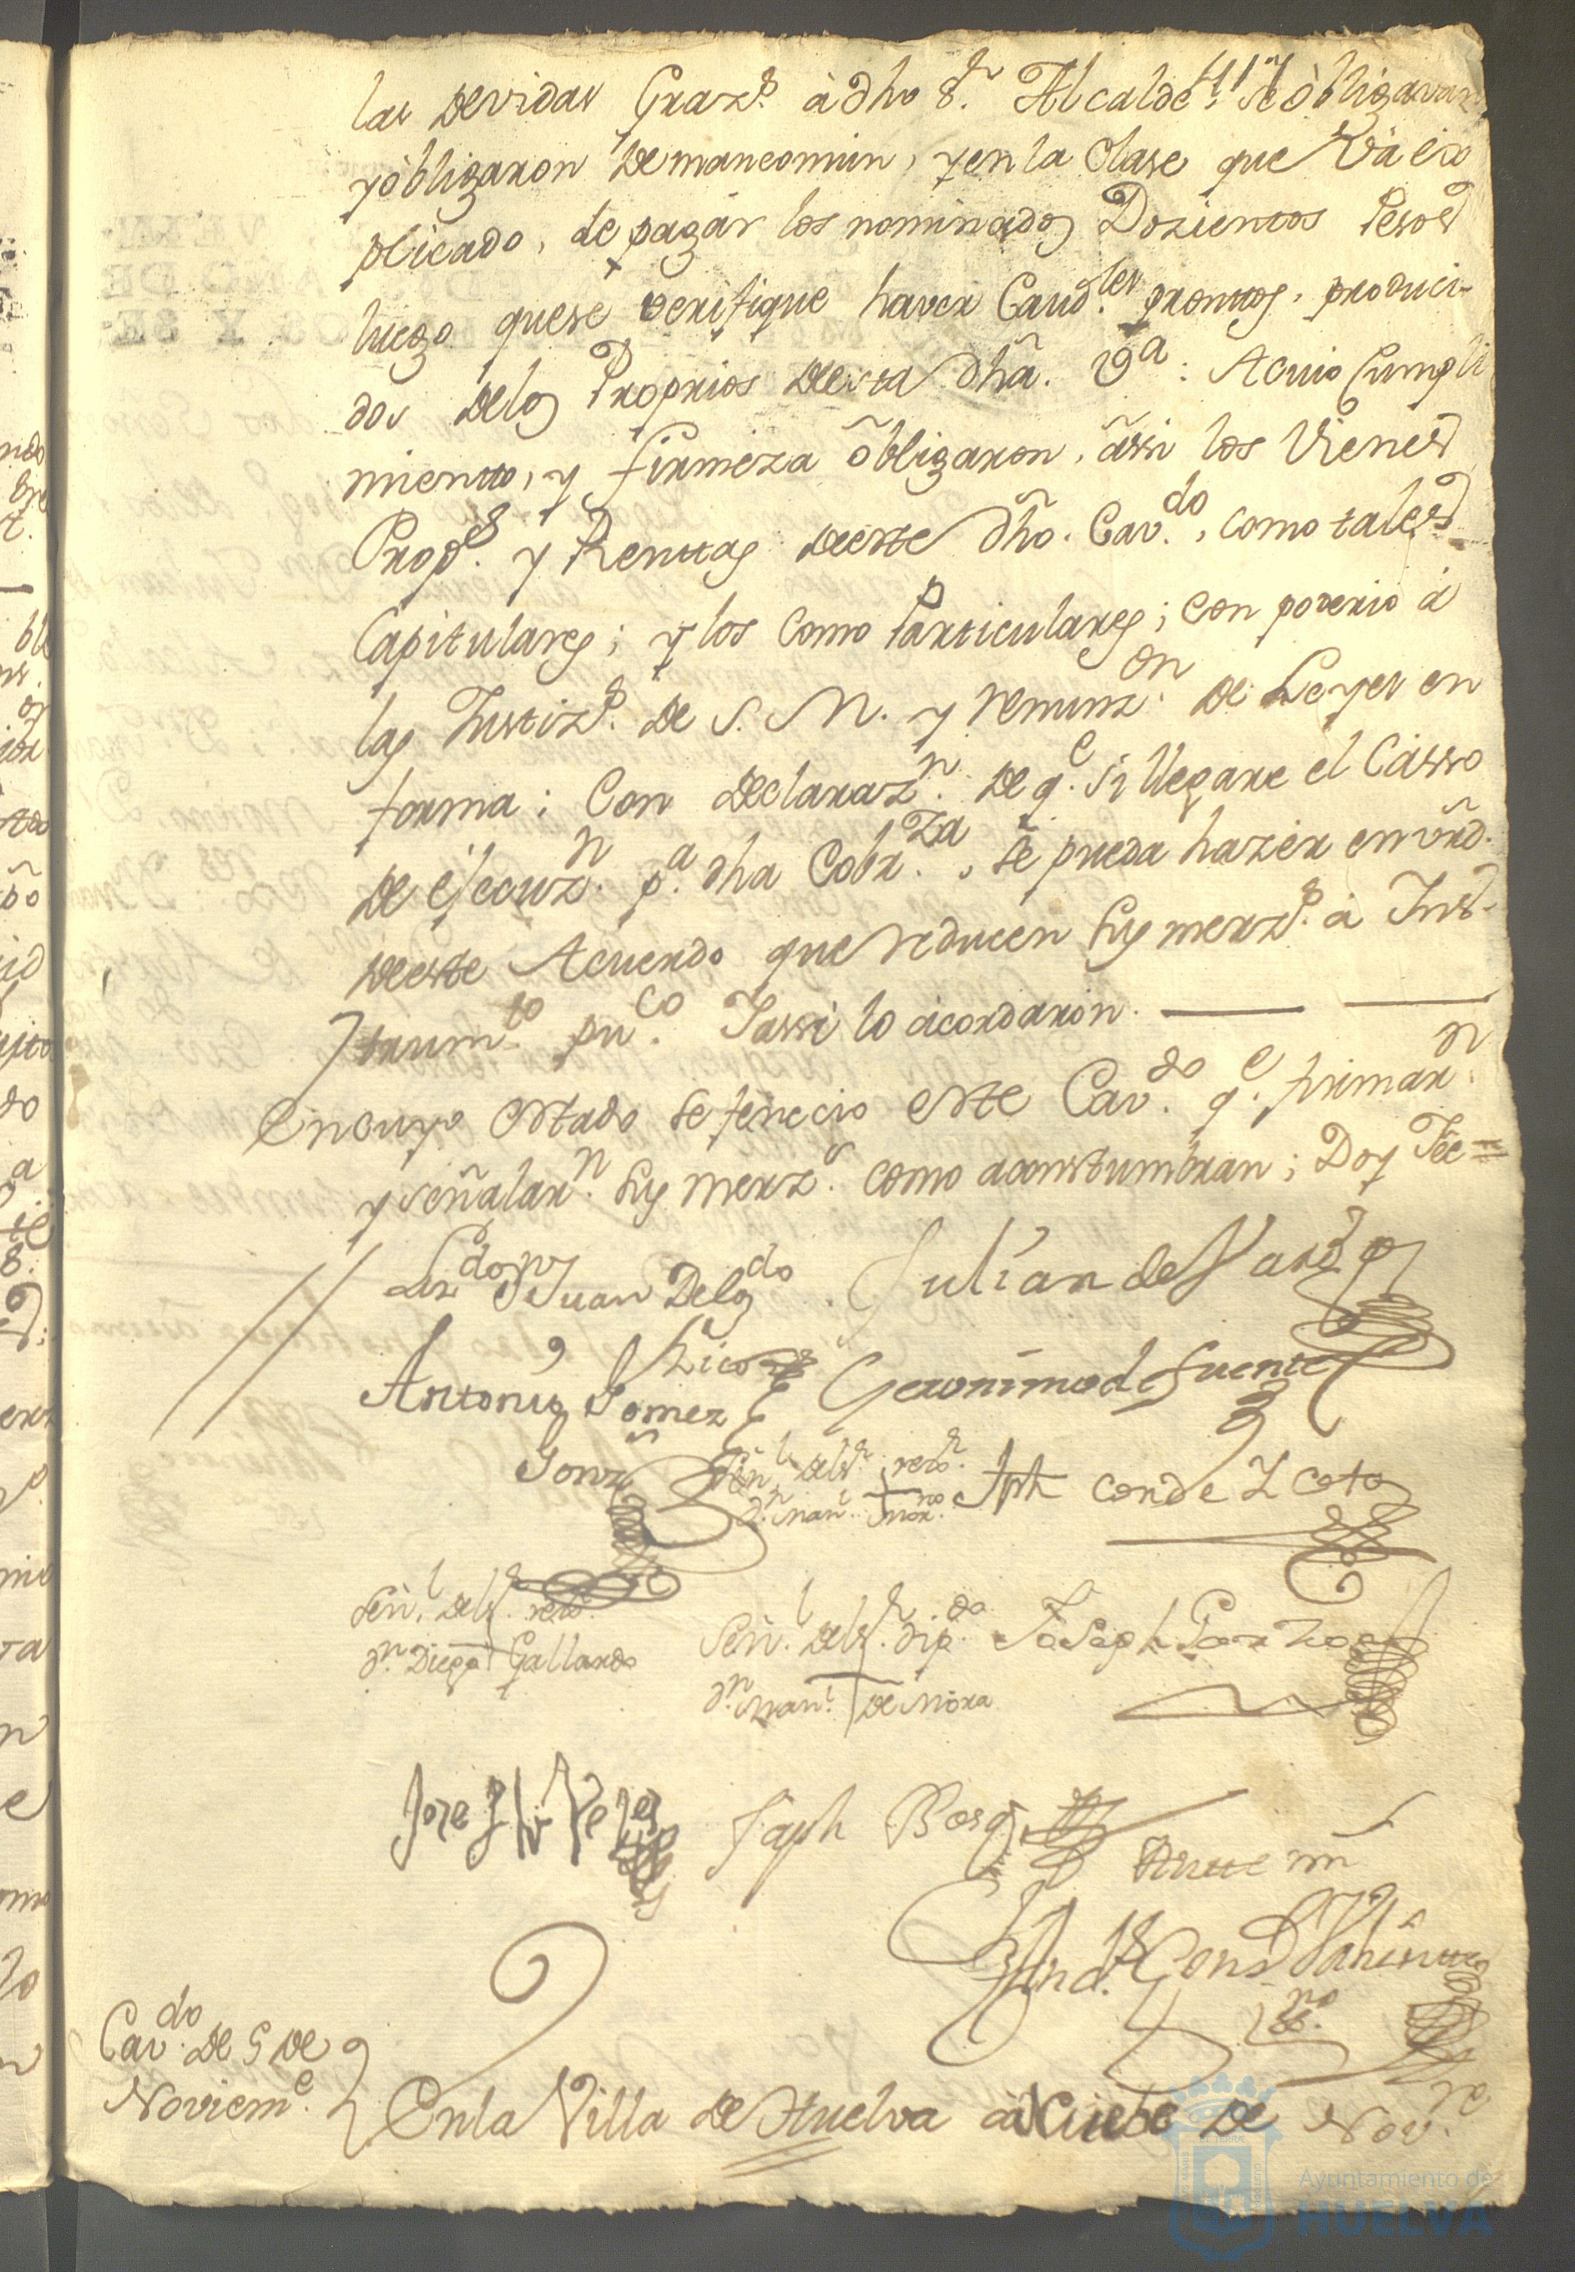 las devidas Graz.s à dho S.r Alcalde, se obligavan
y obligaron de mancomun, y en la Clase que và ex
plicado, de pagàr los nominados Dozientos Pesos
luego que se verifique haver Caud.les promtos, produci-
dos de los Proprios de esta dhã. V.a: A cuio Cumpli
miento, y firmeza obligaron, assi los Vienes
Prop.s y Renttas de este dho. Cav.do, como tales
Capitulares; y los como Particulares; con poderio à
las Justiz.s de S. M. y renunz.on de Leyes en
forma; Con declaraz.n de q.e si llegare el Casso
de ejecuz.n p.a dha Cobr.za, se pueda hazer en vrd.
de este Acuerdo que reducen sus merz.s à Ins-
trum.to pu.co Y assi lo acordaron.
En cuyo estado se fenecio este Cav.do q.e firmar.n
y señalar.n sus merz.s como acostumbran; Doy Fee=
Liz.do Dn Juan Delg.do Julian de
Antonio Gomez Rico Geronimo de fuentes
Señ.l del S.r rexo.r
D.n Man.l Mor.no Jph conde Z coto
Señ.l del S.r rexo.r
D.n Diego Gallardo
Señ.l del S.r dip.do
D.n Man.l de Mora Joseph
Jph Borg
Antte mi
Cav.do de 5 de
Noviem.e
En la Villa de Huelva à Cinco de Nov.re
Ayuntamiento de
HUELVA